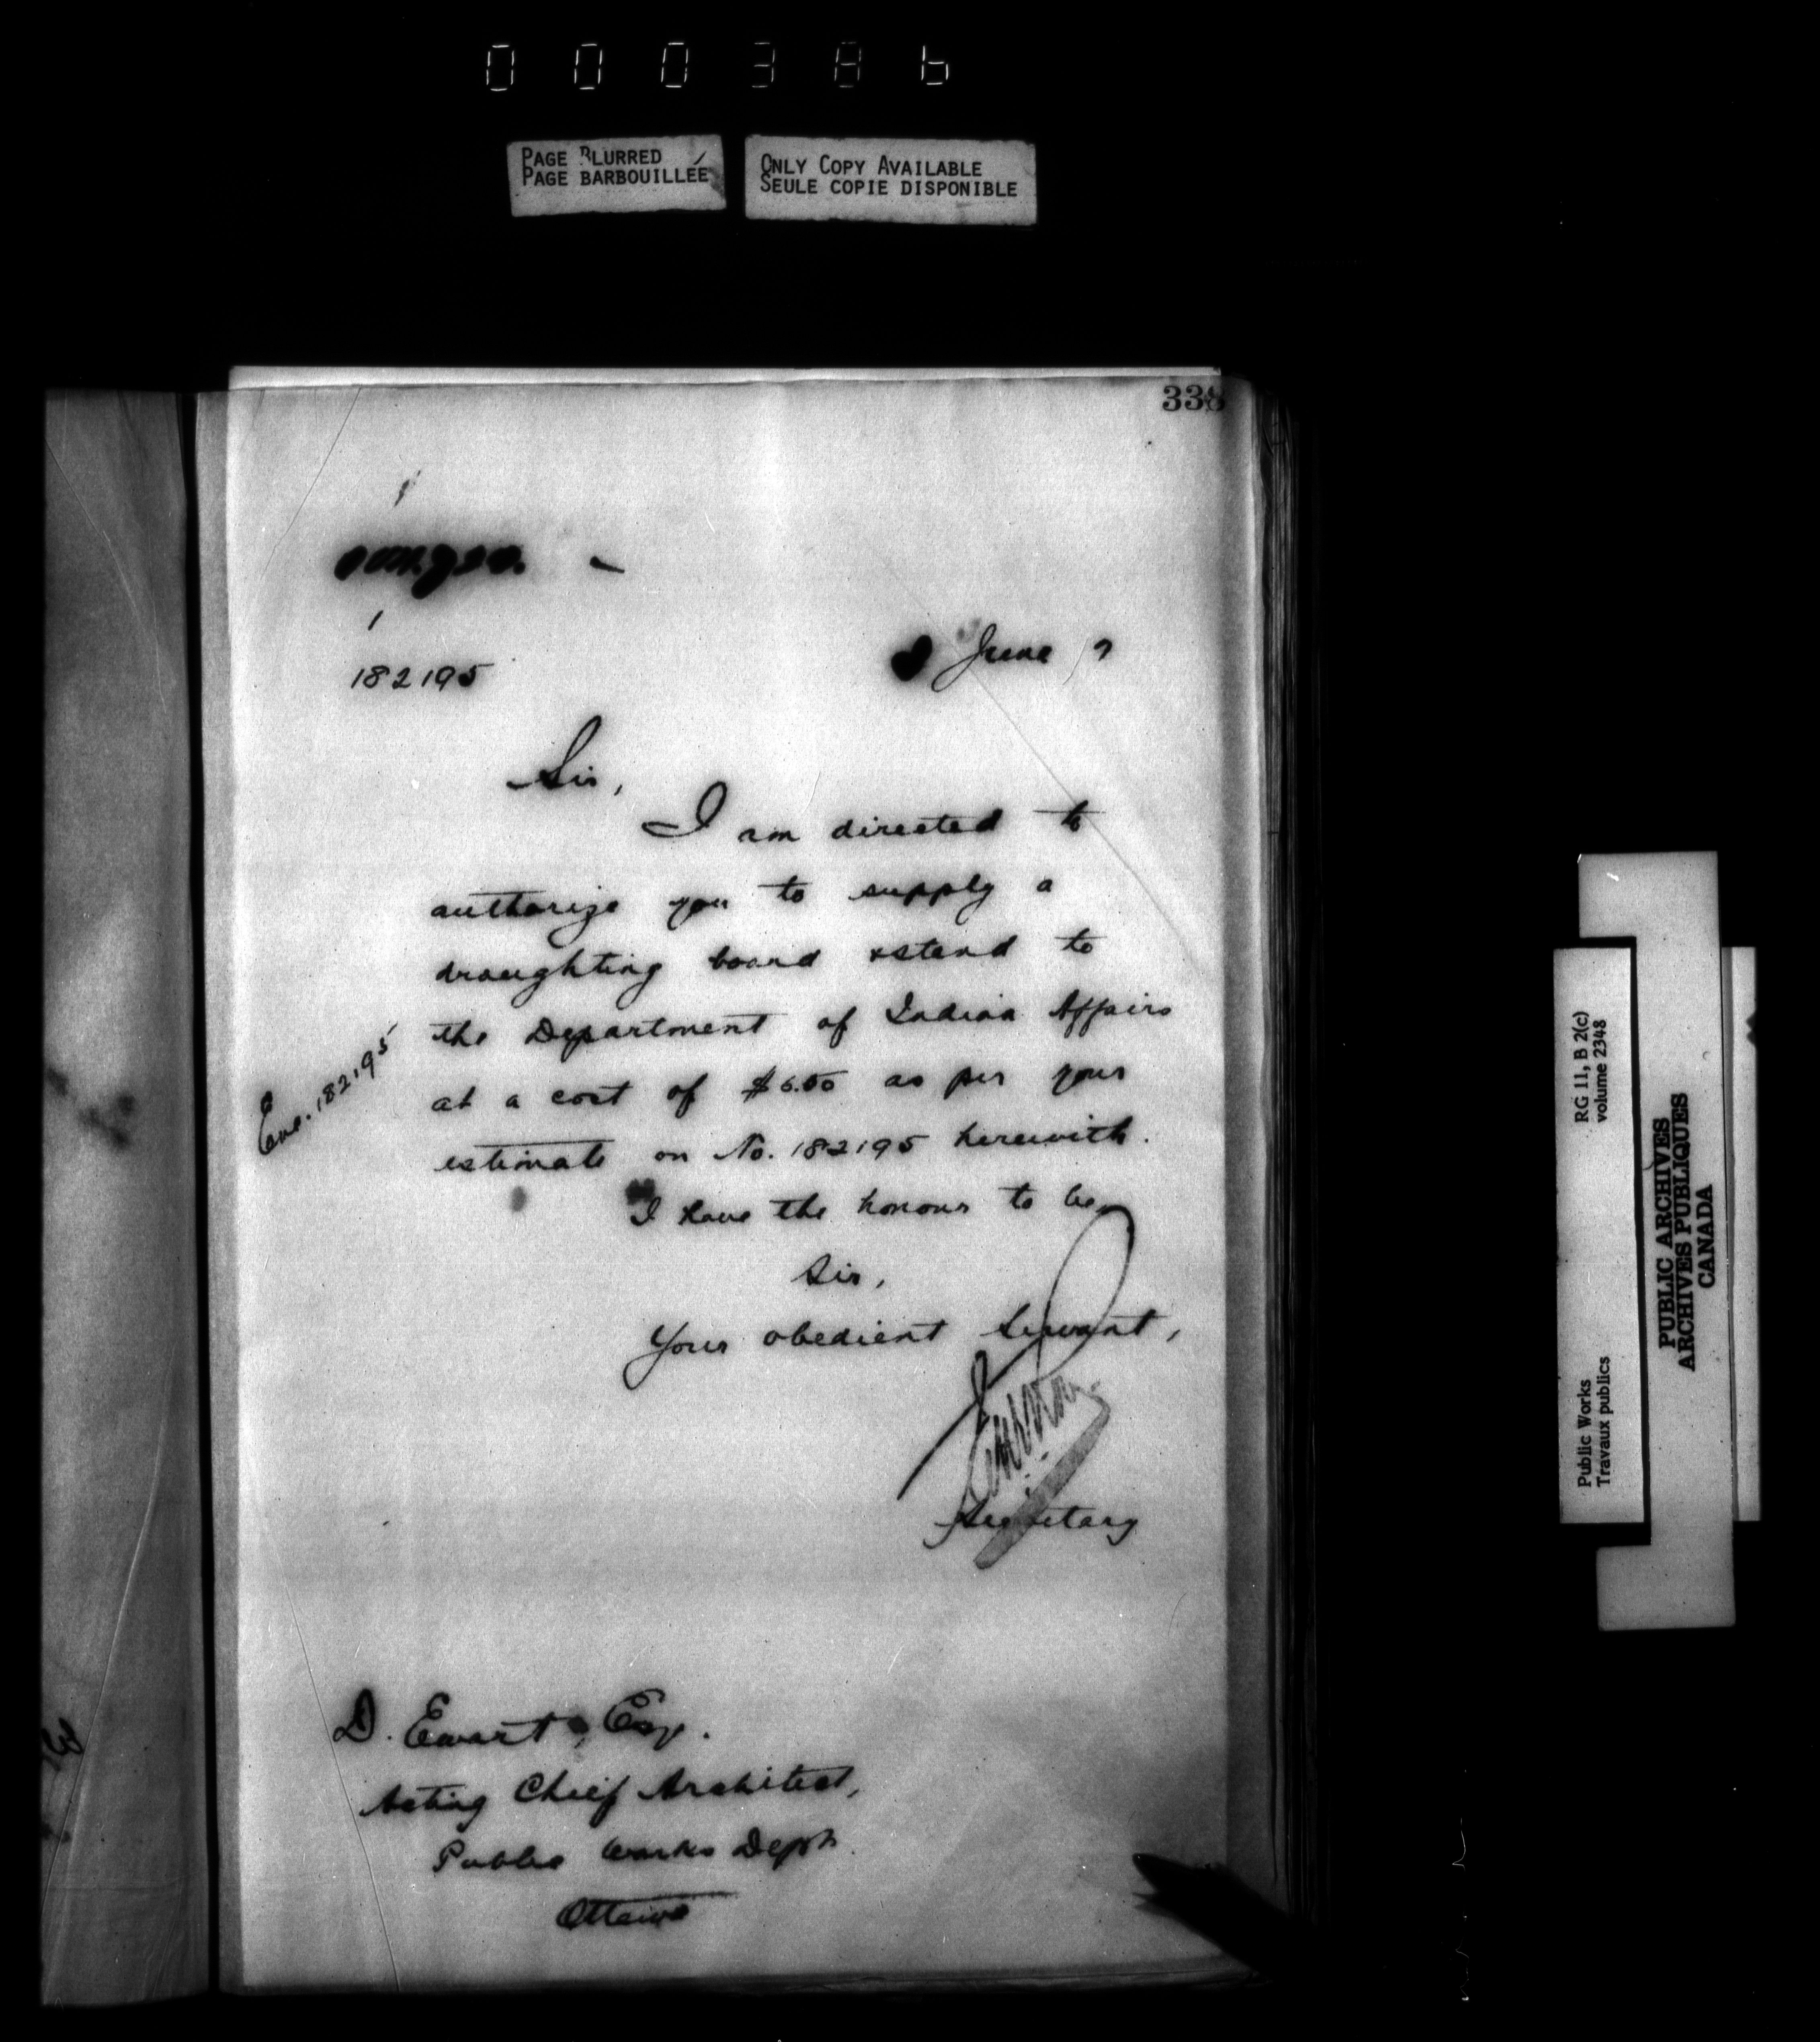 000386
PAGE BLURRED
PAGE BARBOUILLÉE
ONLY COPY AVAILABLE
SEULE COPIE DISPONIBLE
338
182195
June 7
Sir,
I am directed to
authorize you to supply a
draughting board & stand to
the Department of Indian Affairs
at a cost of $6.50 as per your
estimate on No. 182195 herewith.
Enc. 182195
I have the honour to be,
Sir,
Your obedient Servant,
Secretary
D. Ewart, Esq.
Acting Chief Architect,
Public Works Dept.
Ottawa
Public Works
Travaux publics
RG 11, B 2(c)
volume 2348
PUBLIC ARCHIVES
ARCHIVES PUBLIQUES
CANADA